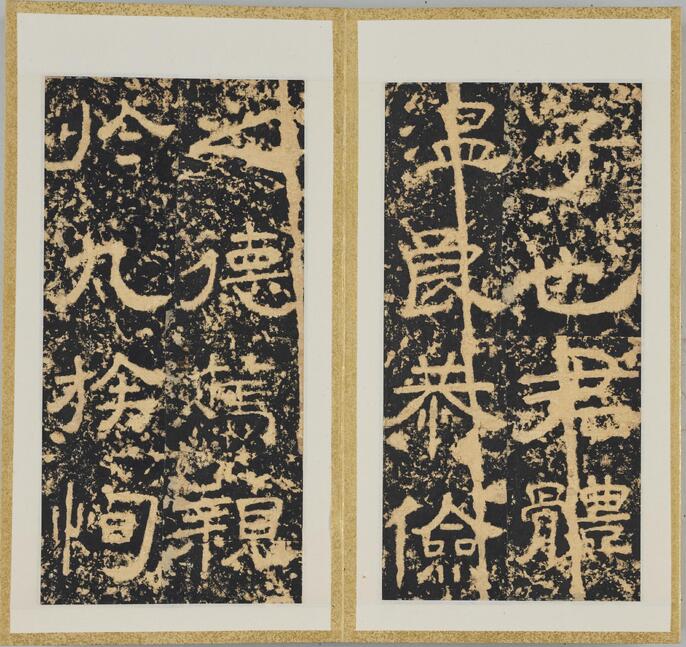 子也君體
温良恭儉
之德篤親
於九族恂